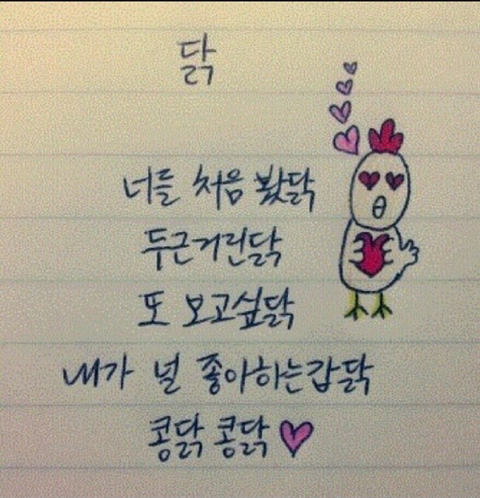 닭
너를 처음 봤닭
두근거린닭
또 보고싶닭
내가 널 좋아하는갑닭
콩닭 콩닭